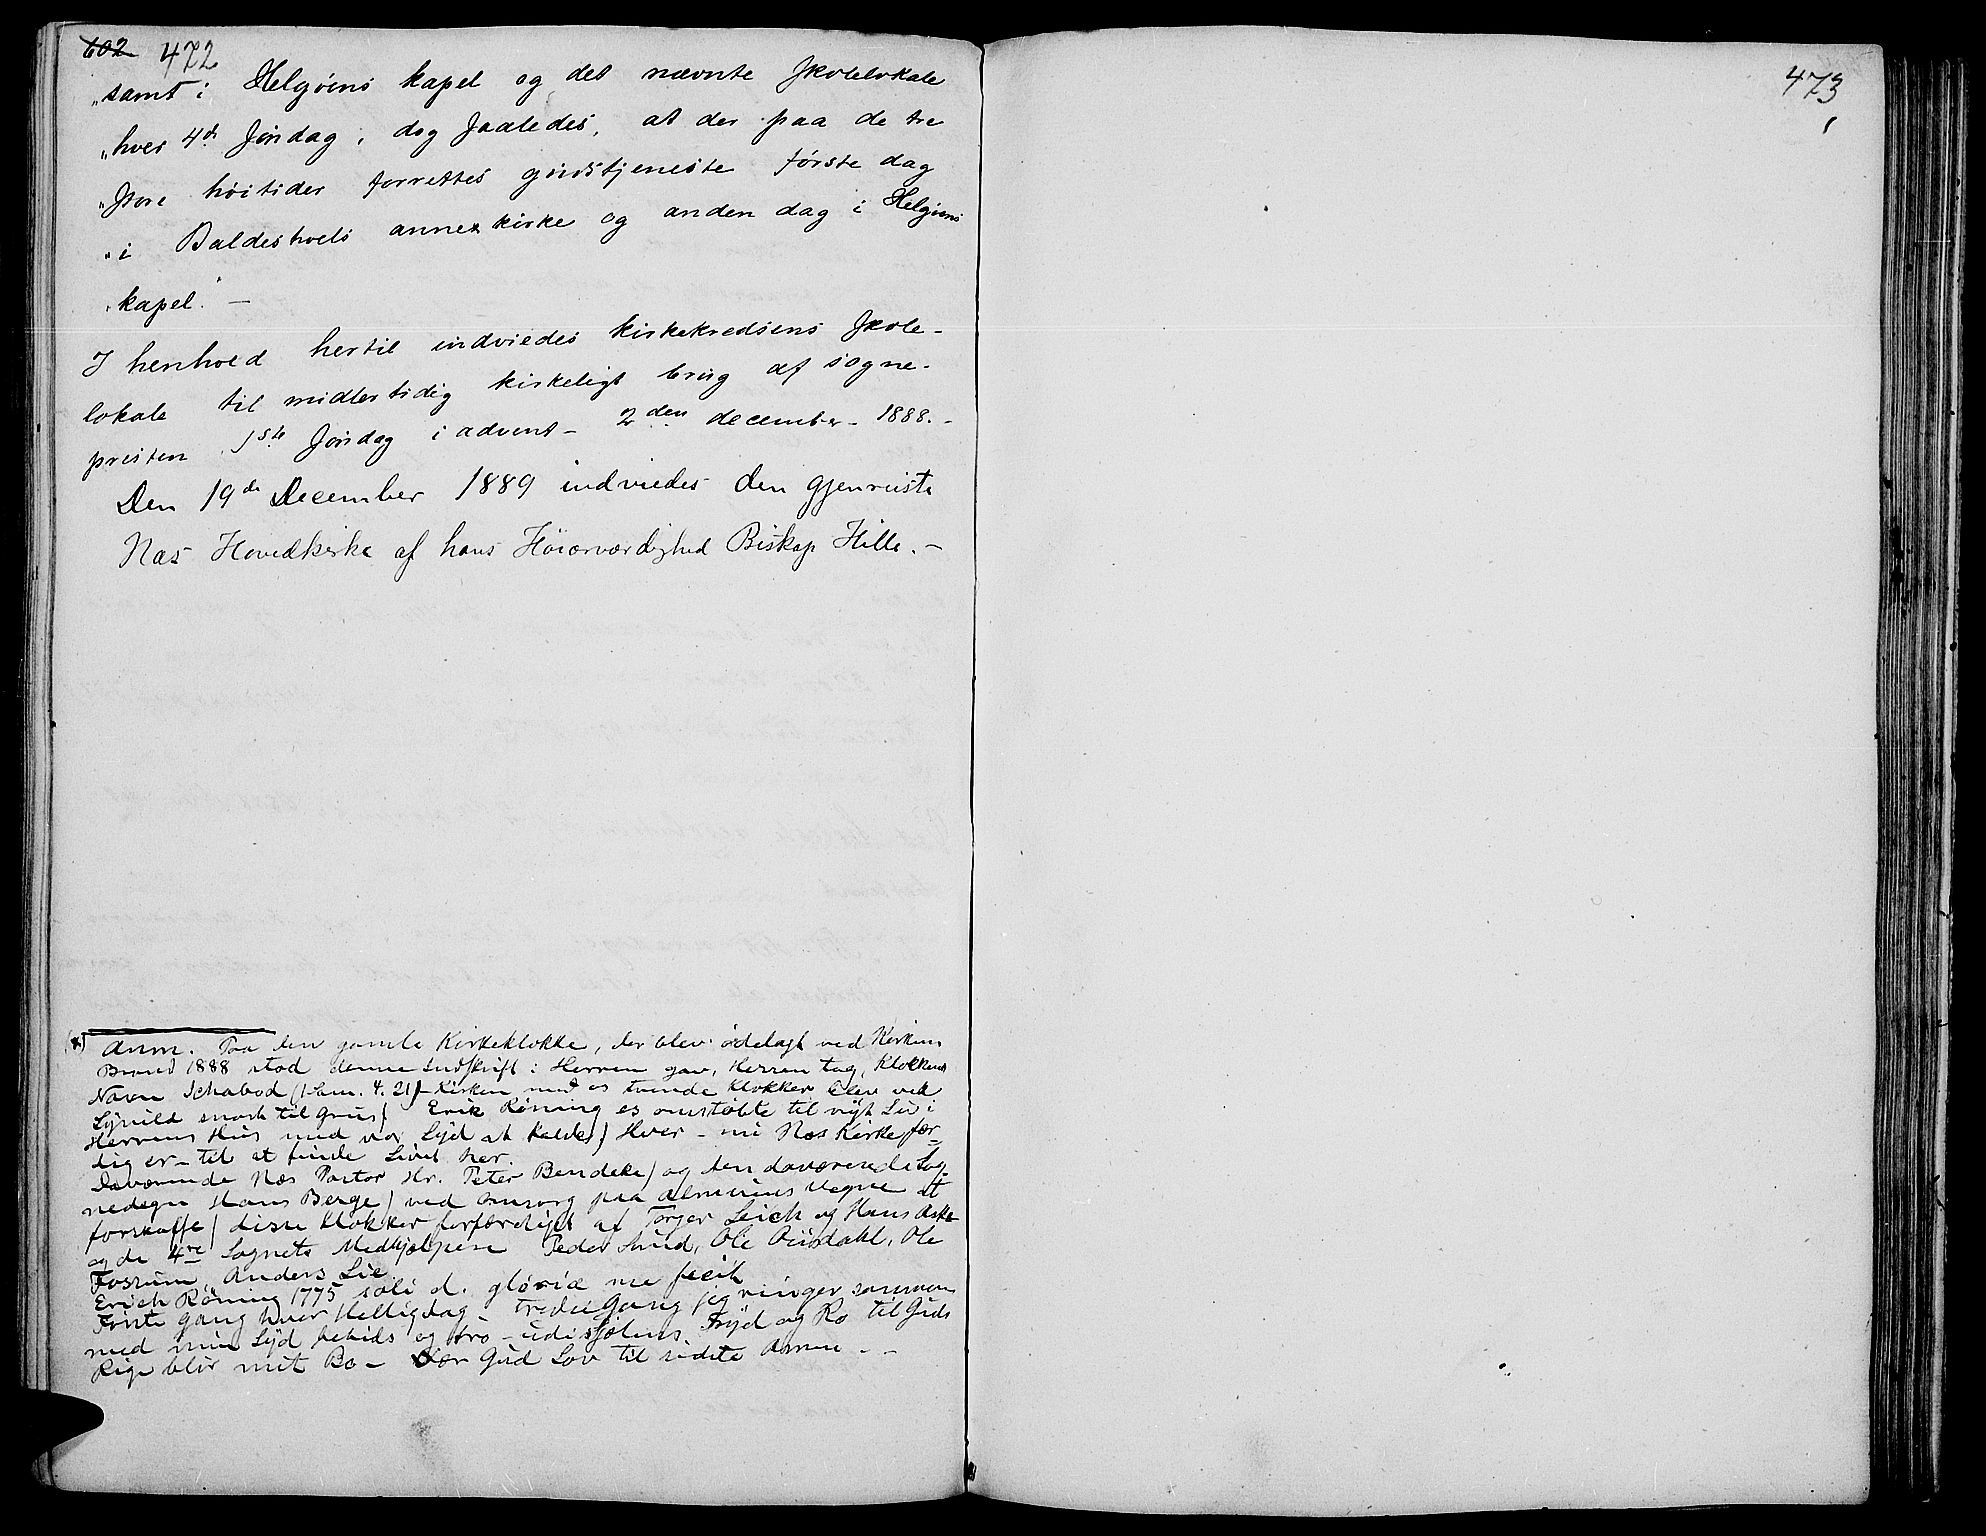 602 472
„samt i Helgøens kapel og det nævnte skolelokale
„hver 4de søndag, dog saaledes, at der paa de tre
„store høitider forrettes gudstjeneste første dag
„i Baldeshvols annexkirke og anden dag i Helgøens
„kapel." —
I henhold hertil indviedes kirkekredsens skole-
lokale til midlertidig kirkeligt brug af sogne-
presten 1ste søndag i advent - 2den december - 1888. -
Den 19de December 1889 indviedes den gjenreiste
Næs Hovedkirke af hans Høiærværdighed Biskop Hille. —
Anm. Paa den gamle Kirkeklokke, der blev ødelagt ved Kirkens
Brand 1888 stod denne Indskrift: Herren gav, Herren tog, Klokkens
Navn Ichabod (1 Sam. 4. 21) Kirken med os tvende Klokker blev ved
Lynild smelt til grus) Erik Røning os omstøbte til nyt Liv i
Herrens Hus med vor Lyd at kalde) Hver - nu Næs Kirke fær-
dig er - til at finde Livet her.
Daværende Næs Pastor Hr. Peter Bendeke) og den daværende Sog-
nedegn Hans Berge) ved omsorg paa Almuens Vegne at
forskaffe) disse Klokker forfærdiget af Torger Leich og Hans Aske
og de 4re Sognets Medhjælpere Peder Sund, Ole Ousdahl, Ole
Fossum, Anders Lie
Erich Røning 1775 soli d. gloriæ me fecit
Første Gang hver Helligdag tredie Gang jeg ringer sammen
med min Lyd og tro - Sjælens Fryd og Ro til Guds
Rige blir mit Bo - Vær Gud Lov til sidste Amen - -
473